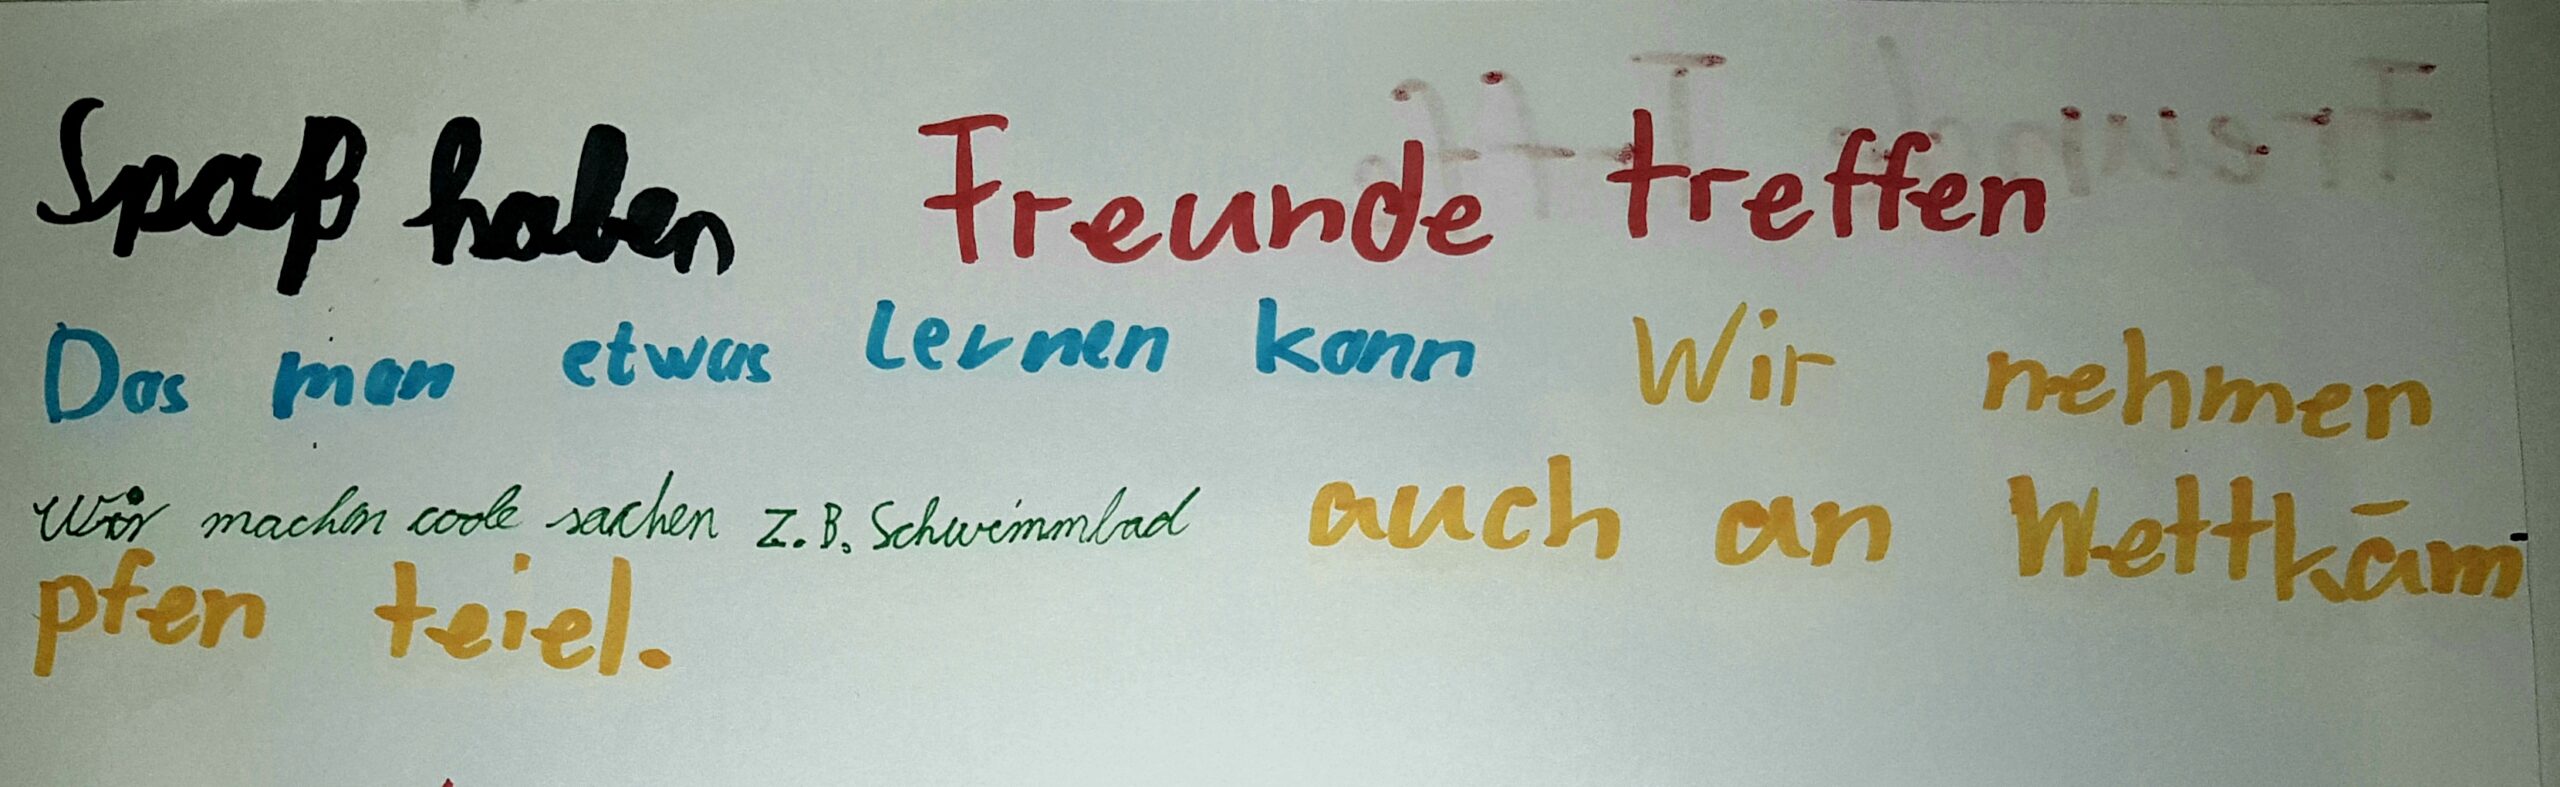 Spaß haben Freunde treffen
Das man etwas lernen kann Wir nehmen
Wir machen coole sachen z.B. Schwimmbad auch an Wettkäm
pfen teiel.